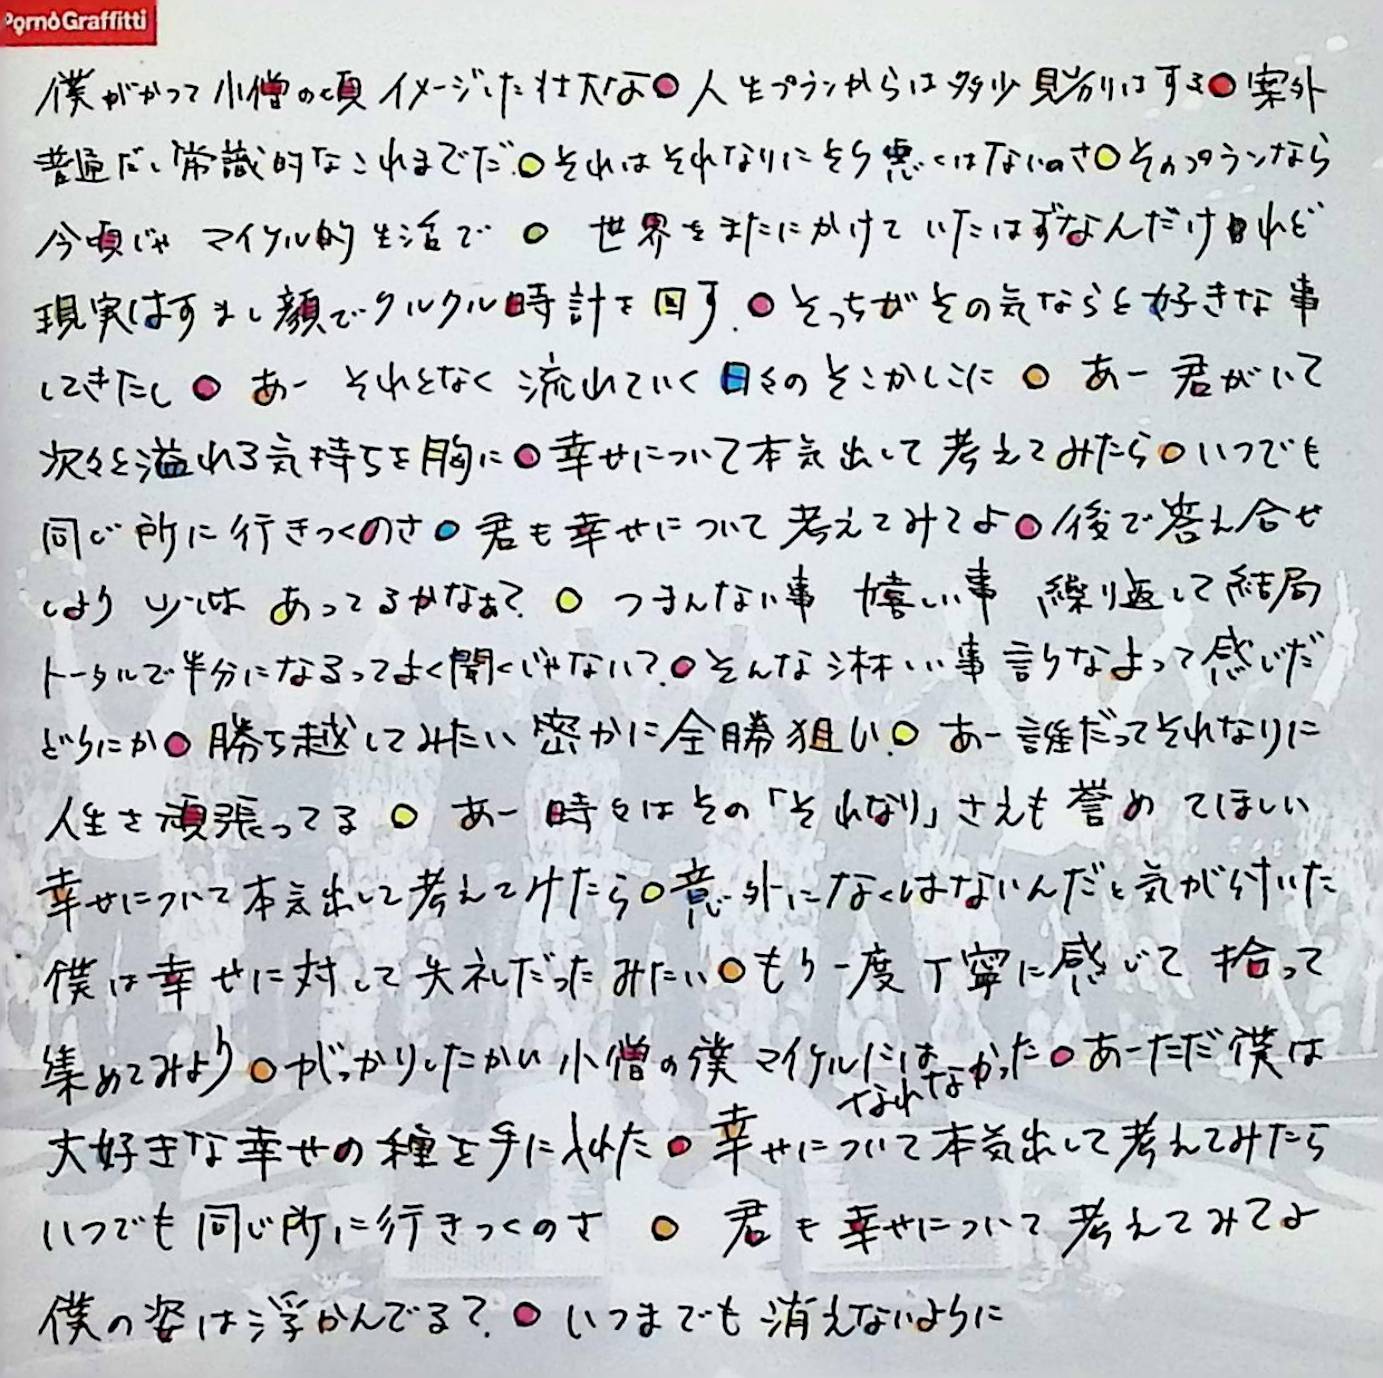 PornoGraffitti
僕がかつて小僧の頃 イメージした壮大な●人生プランからは多少見劣りはする●案外
普通だし常識的なこれまでだ.●それはそれなりにそう悪くはないのさ●そのプランなら
今頃じゃ マイケル的生活で ● 世界をまたにかけていたはずなんだけれど
現実はすまし顔でクルクル時計を回す.●そっちがその気ならと好きな事
してきたし ● あー それとなく 流れていく 日々のそこかしこに ● あー 君がいて
次々と溢れる気持ちを胸に●幸せについて本気出して考えてみたら●いつでも
同じ所に行きつくのさ●君も幸せについて考えてみてよ●後で答え合せ
しよう 少しは あってるかなぁ? ● つまんない事 嬉しい事 繰り返して結局
トータルで半分になるってよく聞くじゃない?.●そんな淋しい事言うなよって感じだ
どうにか●勝ち越してみたい密かに全勝狙い.●あー誰だってそれなりに
人生を頑張ってる ● あー 時々はその「それなり」さえも誉めてほしい
幸せについて本気出して考えてみたら●意外になくはないんだと気が付いた
僕は幸せに対して失礼だったみたい●もう一度丁寧に感じて拾って
集めてみよう●がっかりしたかい小僧の僕 マイケルにはなれなかった●あーただ僕は
大好きな幸せの種を手に入れた●幸せについて本気出して考えてみたら
いつでも同じ所に行きつくのさ ● 君も幸せについて考えてみてよ
僕の姿は浮かんでる?.●いつまでも消えないように